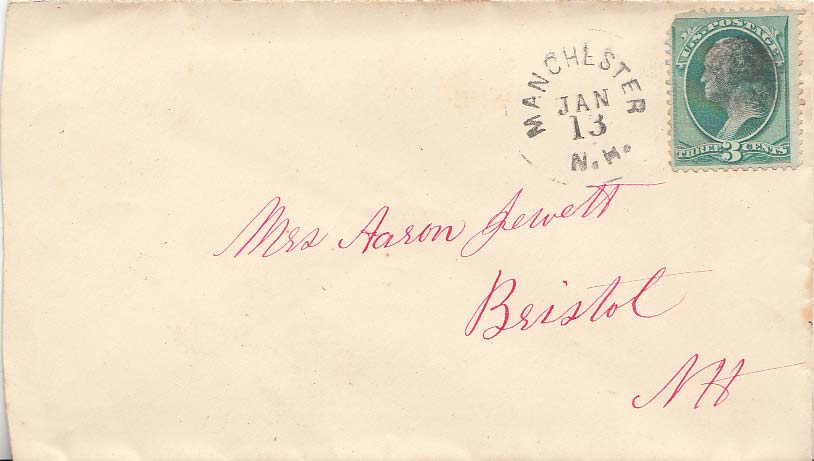 U.S. POSTAGE
THREE 3 CENTS
MANCHESTER
JAN
13
N.H.
Mrs Aaron Jewett
Bristol
NH